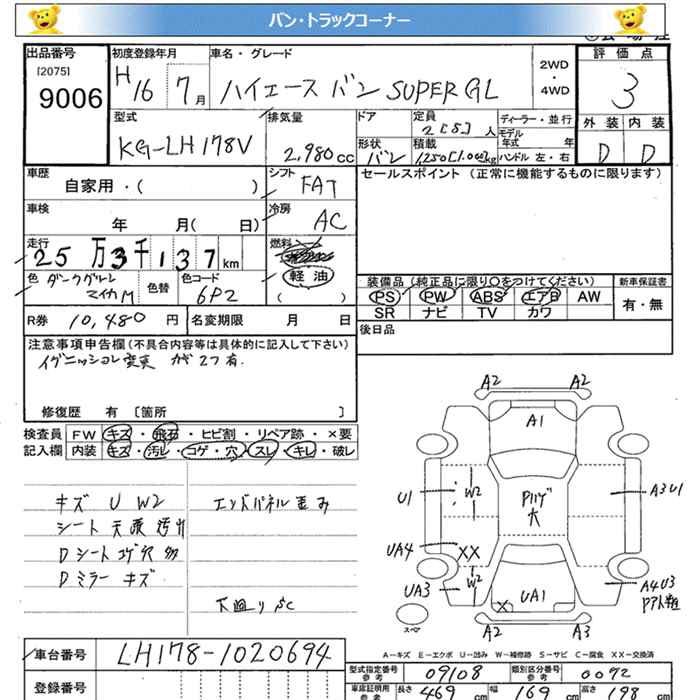 バン・トラックコーナー
出品番号 初度登録年月 車名・グレード 2WD ・ 4WD 評価点
[2075]
9006 H16 7月 ハイエース バン SUPER GL 3
型式 排気量 ドア 定員 ディーラー・並行 外装 内装
KG-LH178V 2,980cc 2[5]人 モデル年式 年 D D
形状 バン 積載 1,250[1,000]kg ハンドル 左・右
車歴 シフト セールスポイント (正常に機能するものに限ります)
自家用・( ) FAT
車検 冷房
年 月( 日) AC
走行 燃料
25万3千137km 軽油
( )
色 ダークグリーンマイカM 色替 色コード 6P2
装備品 (純正品に限り○をつけてください) 新車保証書
PS PW ABS エアB AW 有・無
SR ナビ TV カワ
R券 10,480円 名変期限 月 日 後日品
注意事項申告欄 (不具合内容等は具体的に記入して下さい)
イグニッション変更 カギ2つ有.
修復歴 有 [箇所 ]
検査員 FW キズ・飛石・ヒビ割・リペア跡・×要
記入欄 内装 キズ・汚レ・コゲ・穴・スレ・キレ・破レ
キズ U W2 エンドパネル歪み
シート 天張 汚れ
Dシート コゲ穴 多
Dミラー キズ
下廻り SC
A2 A2
A1
U1 W2 A3U1
UA4 XX
UA3 W2 UA1 X A4U3
A2 A3
スペア
A-キズ E-エクボ U-凹み W-補修跡 S-サビ C-腐食 XX-交換済
車台番号 LH178-1020694
型式指定番号 参考 09108 類別区分番号 参考 0072
登録番号 車庫証明用 参考 長さ 469cm 幅 169cm 高さ 198cm